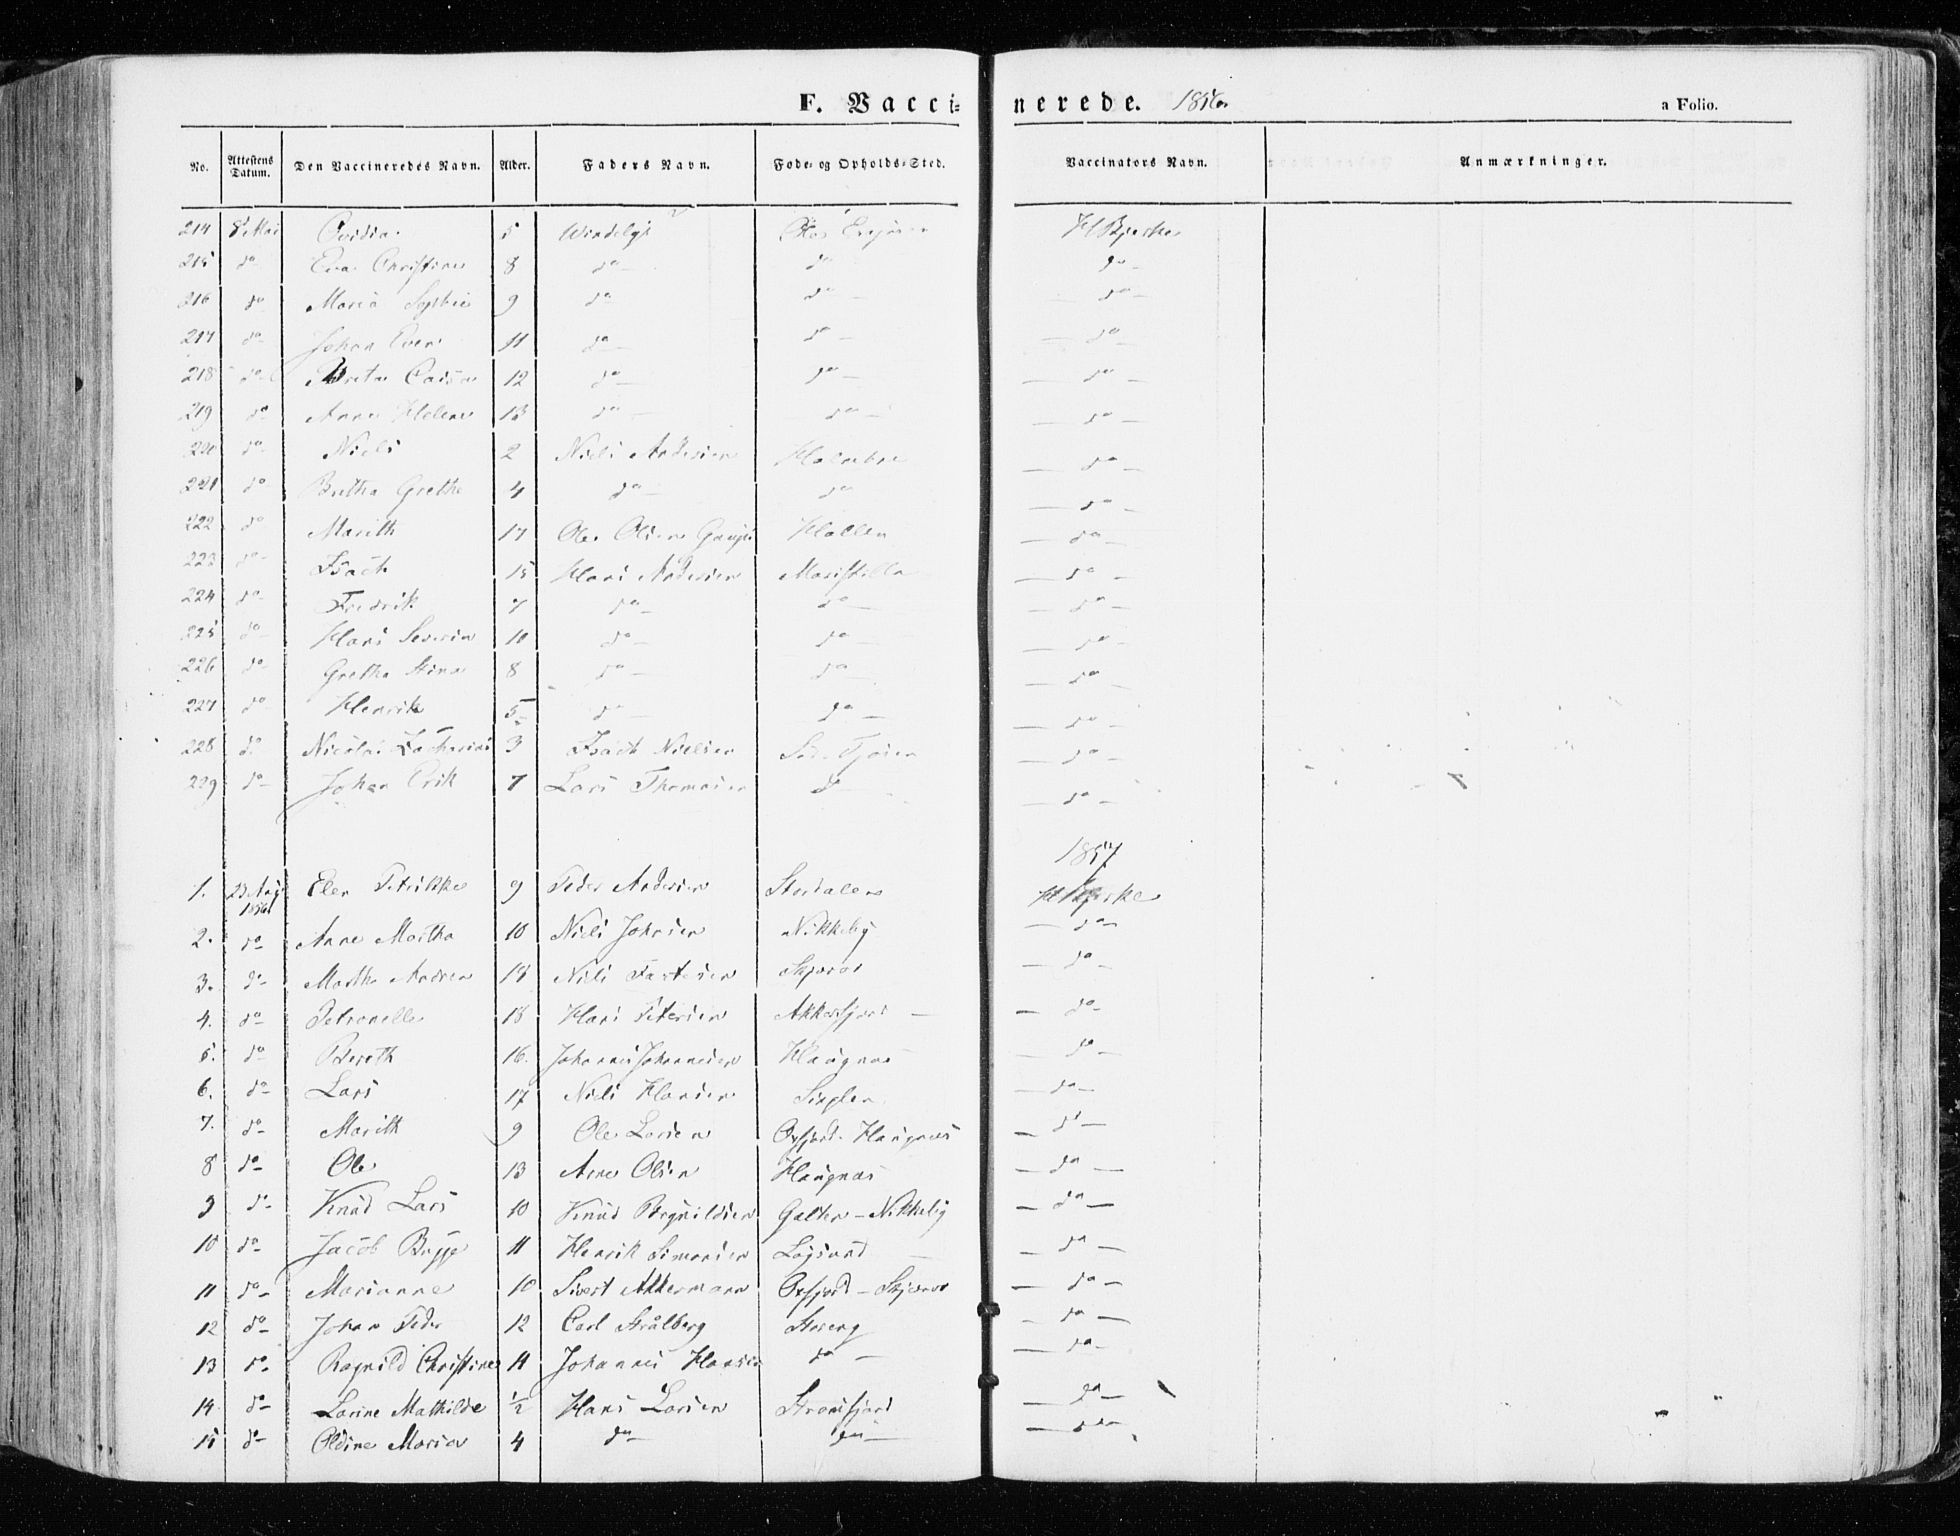 F. Vaccinerede. 1856. a Folio.
No. Attestens Datum. Den Vaccineredes Navn. Alder. Faders Navn. Føde- og Opholds-Sted. Vaccinators Navn. Anmærkninger.
214 8de Mai 5 H Bjerke
215 do Eva Christine 8 do do do
216 do Maria 9 do do do
217 do Johan Ever 11 do do do
218 do Caisa 12 do do do
219 do Anne Helene 13 do do do
220 do Niels 2 Niels Andersen do
221 do Grethe 4 do do do
222 do Marith 17 Ole Olsen do
223 do Isach 15 Hans Andersen do
224 do Fredrik 7 do do do
225 do Hans Severin 10 do do do
226 do Grethe Stina 8 do do do
227 do Henrik 5 do do do
228 do Nicolai Zacharias 3 Isach Nielsen do
229 do Johan Erik 7 Lars Thomasen do do
1857
1. 23 Aug 1856 Elen Petrikke 9 Peder Andersen Stordalen H Bjerke
2. do Anne Martha 10 Niels Johnsen Nikkeby do
3. do Martha Andrea 18 Niels Skjervø do
4. do Petronelle 18 Hans Petersen Akkarfjord do
5. do Bereth 16. Johannes Johannesen Haugnæs do
6. do Lars 17 Niels Hansen do
7. do Marith 9 Ole Larsen Oxfjord. Haugnæs do
8 do Ole 13 Arne Olsen Haugnæs do
9 do Knud Lars 10 Knud Galten - Nikkeby do
10 do Jacob Bugge 11 Henrik Simonsen Løgsund do
11 do Marianne 10 Sivert Akkermann Oxfjord - Skjervø do
12 do Johan Peder 12 Carl Strålberg do
13 do Ragnild Christine 11 Johannes Hansen do do
14 do Lorine Mathilde 1/2 Hans Larsen Straumfjord do
15 do Oldine Maria 4 do do do